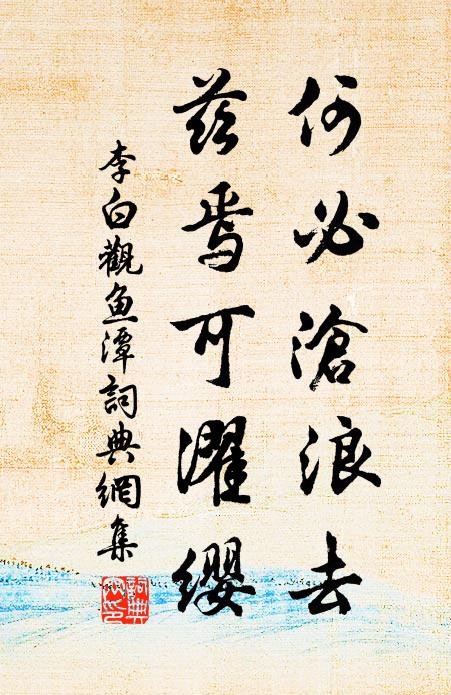 何必滄浪去
茲焉可濯纓
李白觀魚潭詞典網集